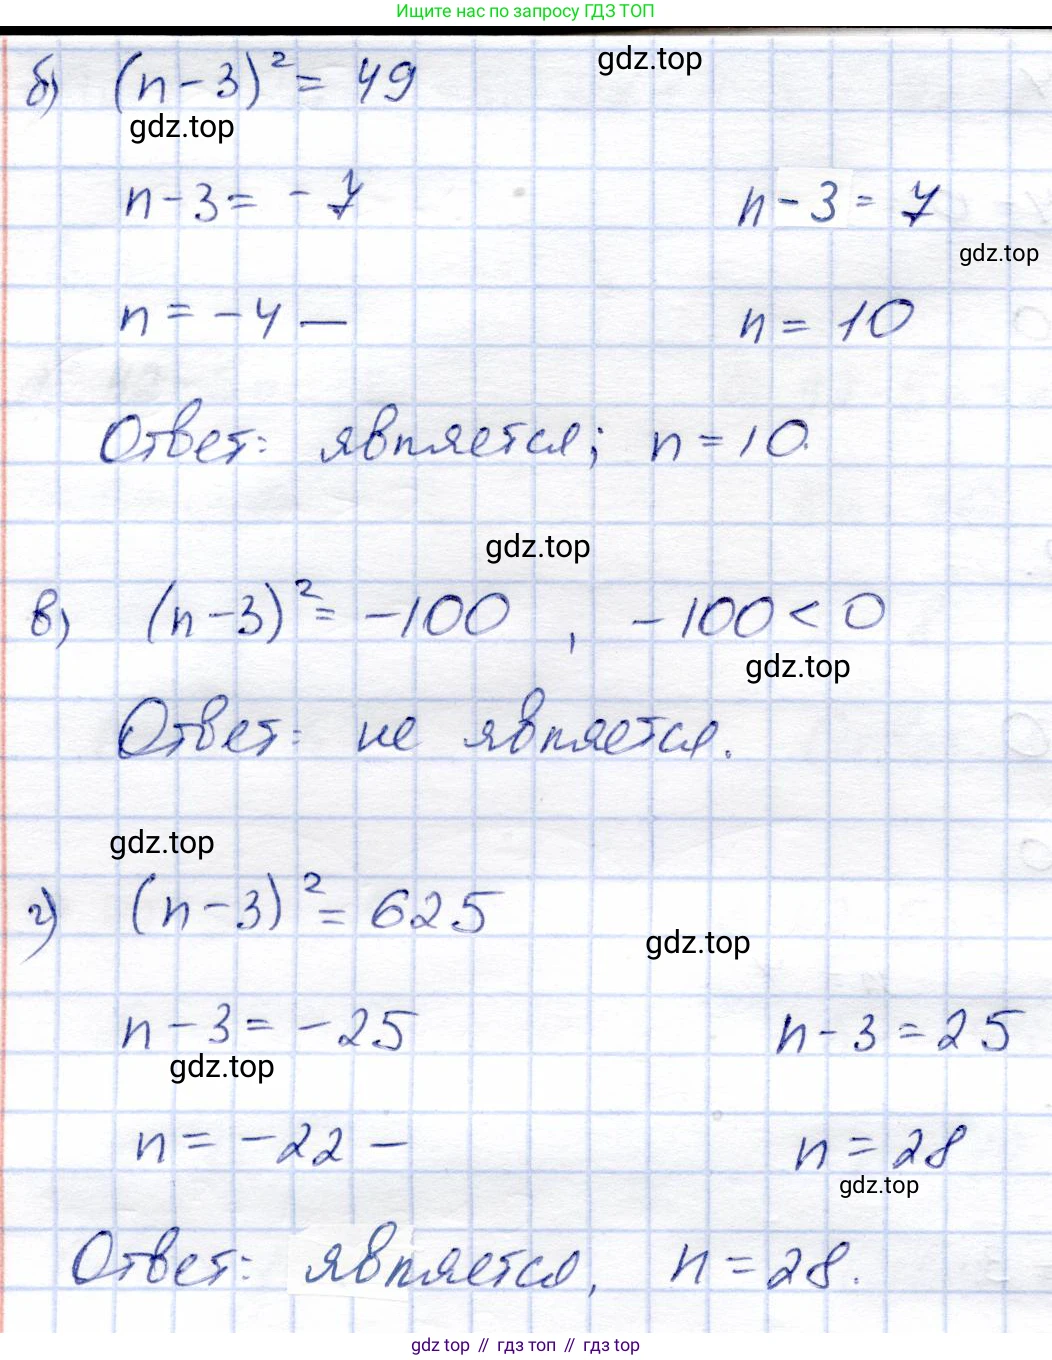 Ищите нас по запросу ГДЗ ТОП
б) (n-3)² = 49
gdz.top
gdz.top
n-3 = -7 n-3 = 7
gdz.top
n = -4 — n = 10
Ответ: является; n = 10.
gdz.top
в) (n-3)² = -100 , -100 < 0
gdz.top
Ответ: не является.
gdz.top
г) (n-3)² = 625
gdz.top
n-3 = -25 n-3 = 25
gdz.top
n = -22 — n = 28
gdz.top
Ответ: является, n = 28.
gdz top // гдз топ // gdz.top